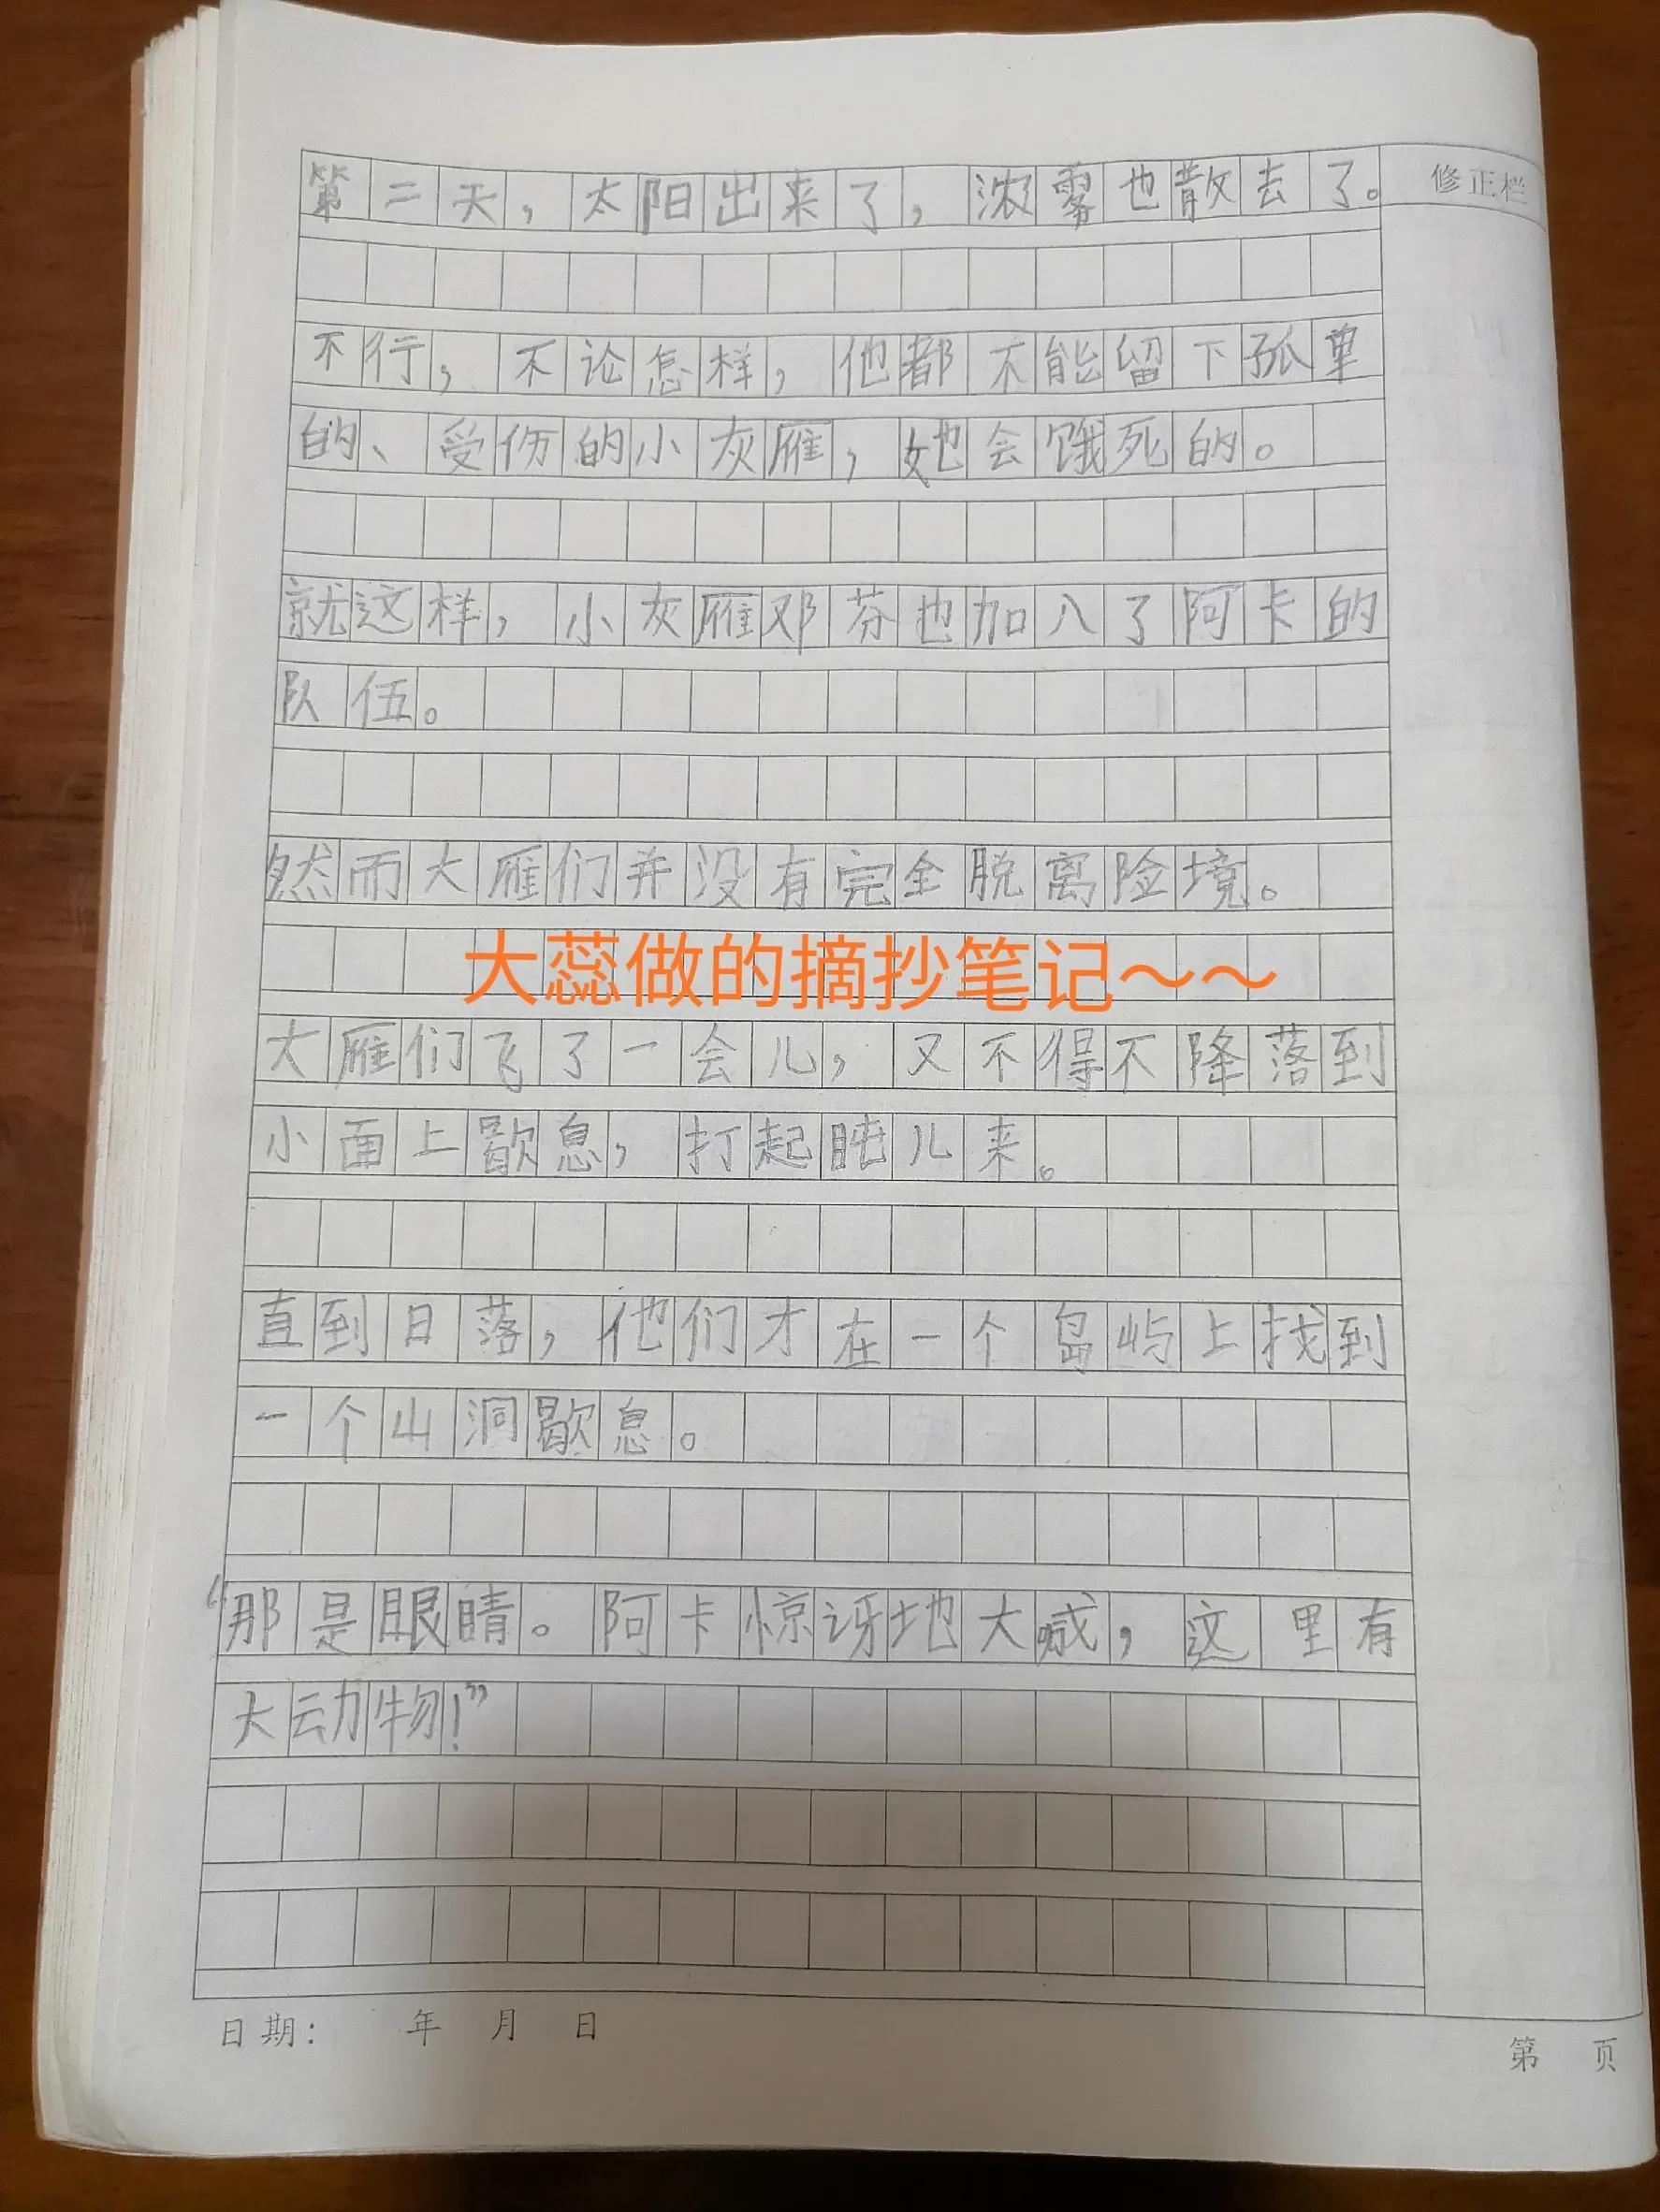 第二天，太阳出来了，浓雾也散去了。
修正栏
不行，不论怎样，他都不能留下孤单
的、受伤的小灰雁，她会饿死的。
就这样，小灰雁邓芬也加入了阿卡的
队伍。
然而大雁们并没有完全脱离险境。
大蕊做的摘抄笔记～～
大雁们飞了一会儿，又不得不降落到
小面上歇息，打起盹儿来。
直到日落，他们才在一个岛屿上找到
一个山洞歇息。
“那是眼睛。阿卡惊讶地大喊，这里有
大动物！”
日期： 年 月 日
第 页